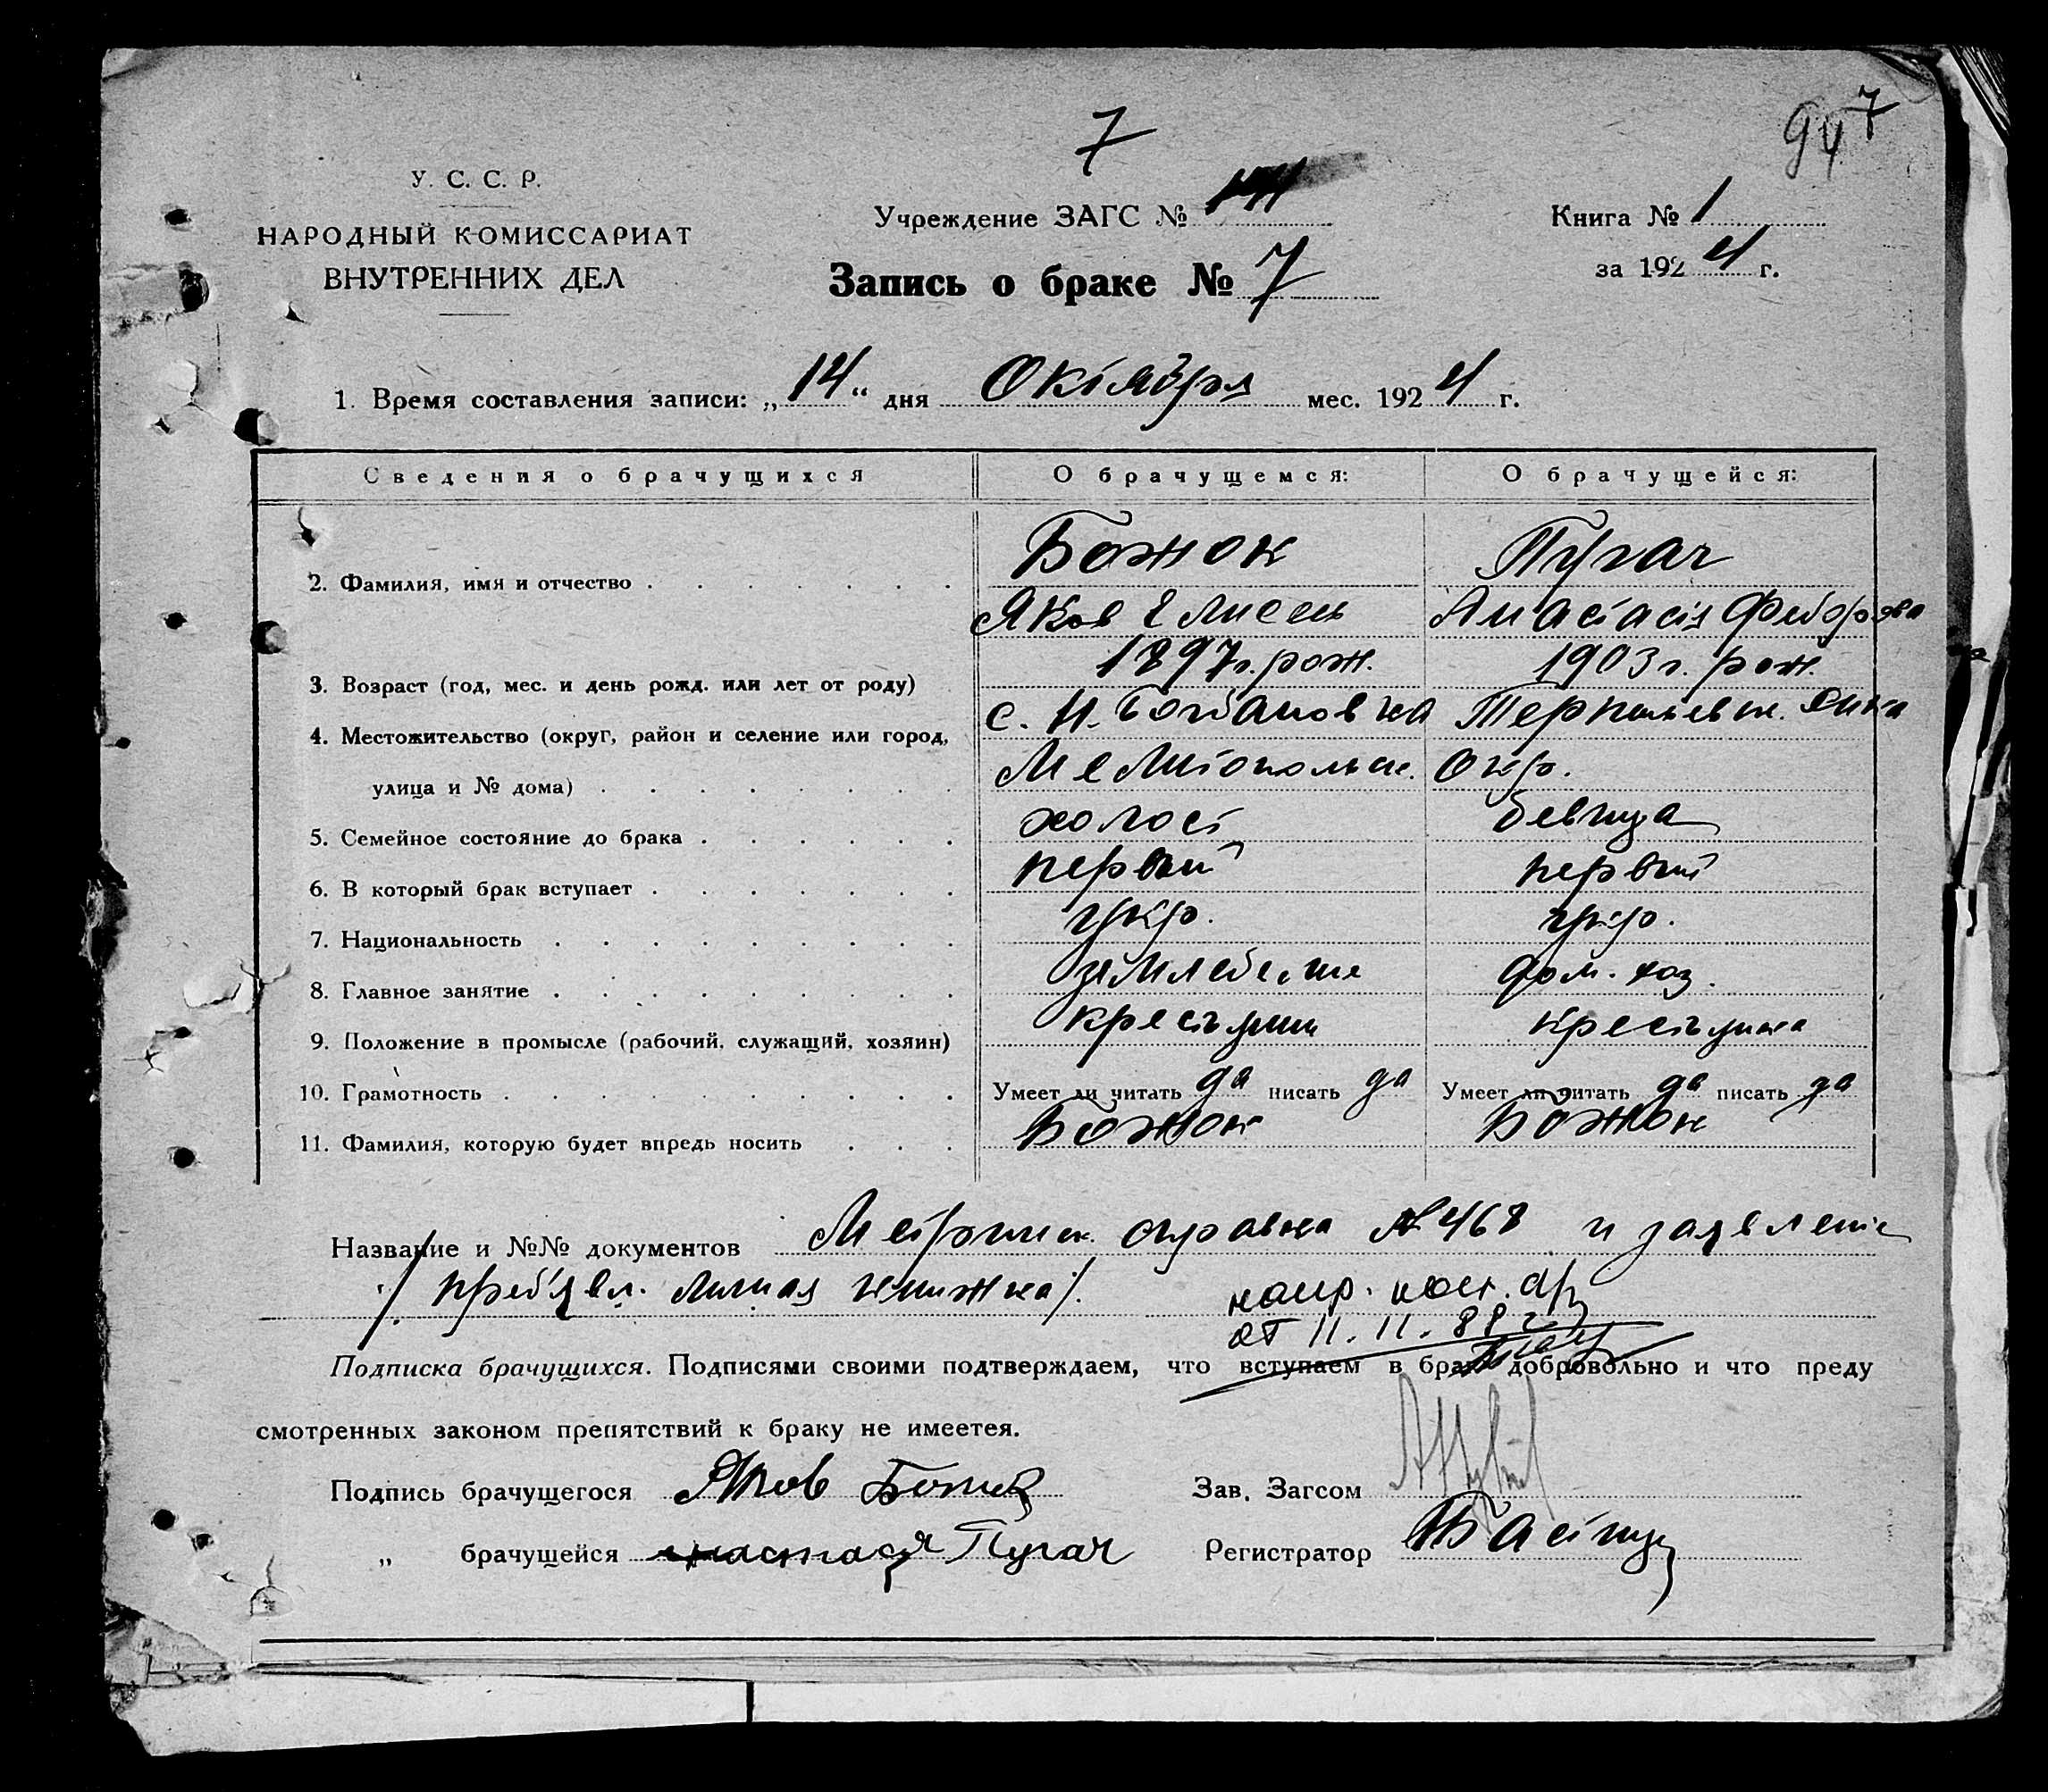 7
94 7
У. С. С. Р.
НАРОДНЫЙ КОМИССАРИАТ
ВНУТРЕННИХ ДЕЛ
Учреждение ЗАГС №
Запись о браке № 7
Книга № 1
за 1924 г.
1. Время составления записи: „14“ дня Октября мес. 1924 г.
Сведения о брачущихся О брачущемся: О брачущейся:
2. Фамилия, имя и отчество Божок Пугач
Яков Елисеев Анастасія Федорова
3. Возраст (год, мес. и день рожд. или лет от роду) 1897 г. рож. 1903 г. рож.
4. Местожительство (округ, район и селение или город, с. Н. Богдановка Терпеньевск.
улица и № дома) Мелитопольск. Окр.
5. Семейное состояние до брака холост девица
6. В который брак вступает первый первый
7. Национальность укр. укр.
8. Главное занятие земледелие дом. хоз.
9. Положение в промысле (рабочий, служащий, хозяин) крестьянин крестьянка
10. Грамотность Умеет ли читать да писать да Умеет ли читать да писать да
11. Фамилия, которую будет впредь носить Божок Божок
Название и №№ документов Метрическ. справка № 468 и заявление
/ пред'явл. личная книжка /.
от 11.11.88 г.
Подписка брачущихся. Подписями своими подтверждаем, что вступаем в брак добровольно и что преду
смотренных законом препятствий к браку не имеетея.
Подпись брачущегося Яков Божок Зав. Загсом
„ брачущейся Настася Пугач Регистратор